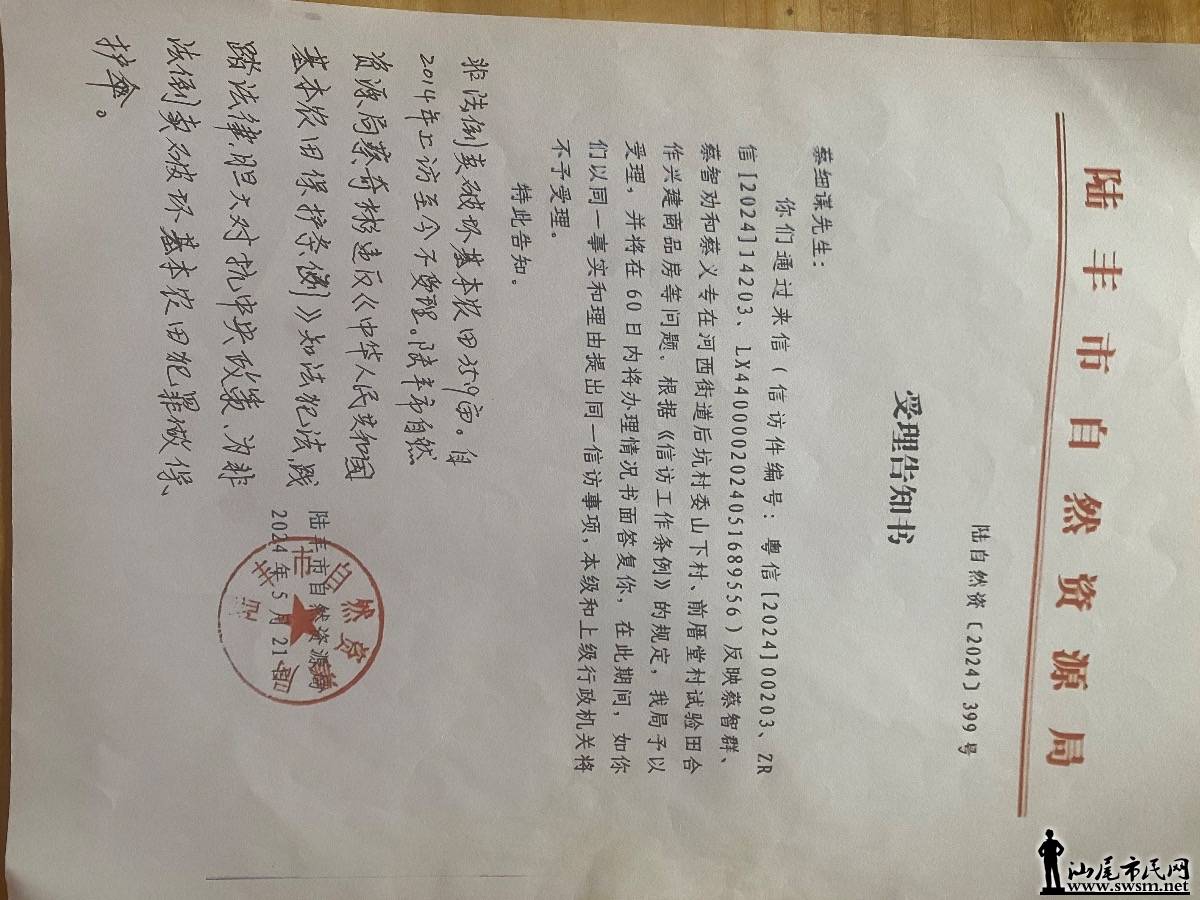 陆丰市自然资源局
陆自然资〔2024〕399号
受理告知书
蔡细谋先生：
你们通过来信（信访件编号：粤信[2024]00203、ZR
信[2024]14203、LX44000020240516895​56）反映蔡智群、
蔡智劝和蔡义专在河西街道后坑村委山下村、前厝堂村试验田合
作兴建商品房等问题，根据《信访工作条例》的规定，我局予以
受理，并将在60日内将办理情况书面答复你，在此期间，如你
们以同一事实和理由提出同一信访事项，本级和上级行政机关将
不予受理。
特此告知。
陆丰市自然资源局
2024年5月21日
非法倒卖破坏基本农田359亩。自
2014年上访至今不受理。陆丰市自然
资源局蔡奇彬违反《中华人民共和国
基本农田保护条例》知法犯法，践
踏法律，胆大对抗中央政策、为非
法倒卖破坏基本农田犯罪做保、
护伞。
汕尾市民网
www.swsm.net